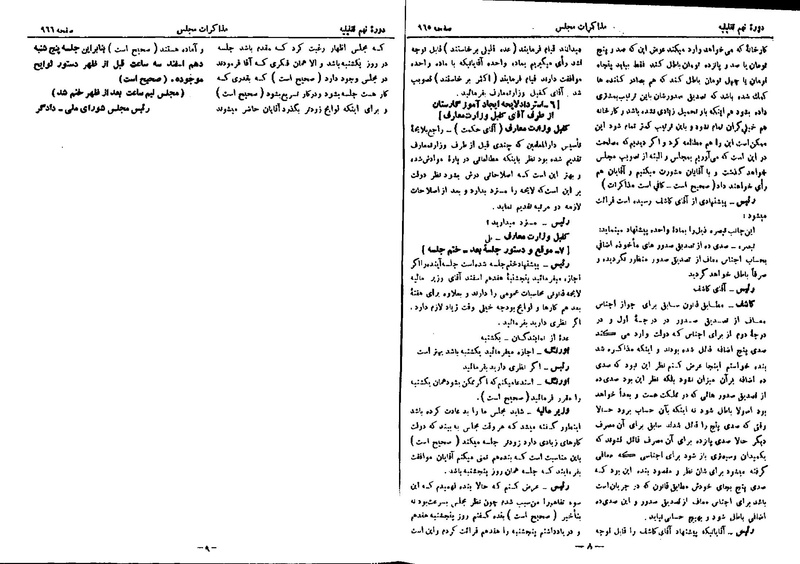 دورهٔ نهم تقنینیه
مذاکرات مجلس
صفحه ۹۶۵
کارخانهٔ که می‌خواهد وارد میکند عوض این که صد و پنج
تومان یا صد و پانزده تومان باطل کند فقط بیاید پنجاه
تومان یا چهل تومان باطل کند که هم بصادر کننده ها
کمک شده باشد که تصدیق صدورشان باین ترتیب بمشتری
داده بشود هم اینکه بار تحمیل زیادی نشده باشد و کارخانه
هم خیلی گران تمام نشود و باین ترتیب کمتر تمام شود این
ممکن است این را هم مطالعه کرد و اگر دیدیم که مصلحت
در این است که می‌آوریم بمجلس و البته از تصویب مجلس
خواهد گذشت و با آقایان مشورت میکنیم و آقایان هم
رأی خواهند داد (صحیح است ـ کافی است مذاکرات)
رئیس ـ پیشنهادی از آقای کاشف رسیده است قرائت
میشود :
این‌جانب تبصره ذیل را بمادهٔ واحده پیشنهاد مینماید:
تبصره ـ صدی ده از تصدیق صدور های مأخوذه اضافی
بحساب اجناس معاف از تصدیق صدور منظور نگردیده و
صرفاً باطل خواهد گردید
رئیس ـ آقای کاشف
کاشف ـ مطابق قانون سابق برای جواز اجناس
معاف از تصدیق صدور در درجهٔ اول و در
درجهٔ دوم از برای اجناس که دولت وارد می کند
صدی پنج اضافه قائل شده بودند و اینکه مذاکره شد
بنده خواستم اینجا عرض کنم نظر این نبود که صدی
ده اضافه بر آن میزان نشود بلکه نظر این بود صدی ده
از تصدیق صدور هائی که در مملکت هست و بعداً خواهد
بود اصولا باطل شود نه اینکه بآن حساب برود حالا
وقتی که صدی پنج را قائل شدند سابق برای آن مصرف
دیگر حالا صدی پانزده برای آن مصرف قائل شوند که
یکمیدان وسیع‌تری باز شود برای اجناسی که معافی
گرفته میشود برای شان نظر و مقصود بنده این بود که
صدی پنج بجای خودش مطابق قانون که در جریان است
باشد برای اجناس معاف از تصدیق صدور و این صدی ده
اضافی باطل شود و بهیچ حسابی نیاید .
رئیس ـ آقایانیکه پیشنهاد آقای کاشف را قابل توجه
میدانند قیام فرمایند (عده قلیلی برخاستند) قابل توجه
نشد رأی میگیریم بماده واحده آقایانیکه با ماده واحده
موافقت دارند قیام فرمایند (اکثر برخاستند) تصویب
شد . آقای کفیل وزارت معارف بفرمائید .
[ ۶ ـ استرداد لایحه ایجاد آموزگارستان
از طرف آقای کفیل وزارت معارف ]
کفیل وزارت معارف (آقای حکمت) ـ راجع بلایحهٔ
تأسیس دارالمعلمین که چندی قبل از طرف وزارت معارف
تقدیم شده بود نظر باینکه مطالعاتی در پارهٔ موادش شده
و بهتر این است که اصلاحاتی درش بشود نظر دولت
بر این است که لایحه را مسترد بدارد و بعد از اصلاحات
لازمه دو مرتبه تقدیم نماید .
رئیس ـ مسترد میدارید ؟
کفیل وزارت معارف ـ بلی
[ ۷ ـ موقع و دستور جلسهٔ بعد ـ ختم جلسه ]
رئیس ـ پیشنهاد ختم جلسه شده است جلسه آینده را اگر
اجازه میفرمائید پنجشنبهٔ هفدهم اسفند آقای وزیر مالیه
لایحهٔ قانونی محاسبات عمومی را دارند و بعلاوه برای هفتهٔ
بعد هم کارها و لوایح بودجه خیلی وقت زیاد لازم دارد .
اگر نظری دارید بفرمائید .
عدهٔ از نمایندگان ـ یکشنبه
اورنگ ـ اجازه میفرمائید یکشنبه باشد بهتر است
رئیس ـ اگر نظری دارید بفرمائید
اورنگ ـ استدعا میکنم که اگر ممکن بشود همان یکشنبه
را مقرر فرمائید (صحیح است) .
وزیر مالیه ـ شاید مجلس ما را بد عادت کرده باشد
اینطور گفته میشد که هر وقت مجلس به بیند که دولت
کارهای زیادی دارد زودتر جلسه میکند (صحیح است)
باین مناسبت است که بنده هم تمنی میکنم آقایان موافقت
بفرمایند که جلسه همان روز پنجشنبه باشد .
رئیس ـ عرض کنم که حالا بنده فهمیدم که این
سوء تفاهم را من سبب شدم چون نظر مجلس بسرعت بود نه
بتأخیر (صحیح است) بنده گفتم روز پنجشنبه هفدهم
و در یادداشتم پنجشنبه را هفدهم قرائت کردم و این است
ـ ۸ ـ
دورهٔ نهم تقنینیه
مذاکرات مجلس
صفحه ۹۶۶
که مجلس اظهار رغبت کرد که مقدم باشد جلسه
در روز یکشنبه باشد و الا همان فکری که آقا فرمودند
در مجلس وجود دارد (صحیح است) که بقدری که
کار هست جلسه بشود و درکار تسریع بشود (صحیح است)
و برای اینکه لوایح زودتر بگذرد آقایان حاضر میشوند
و آماده هستند (صحیح است) بنابراین جلسه پنج شنبه
دهم اسفند سه ساعت قبل از ظهر دستور لوایح
موجوده . (صحیح است)
(مجلس نیم ساعت بعد از ظهر ختم شد)
رئیس مجلس شورای ملی ـ دادگر
ـ ۹ ـ